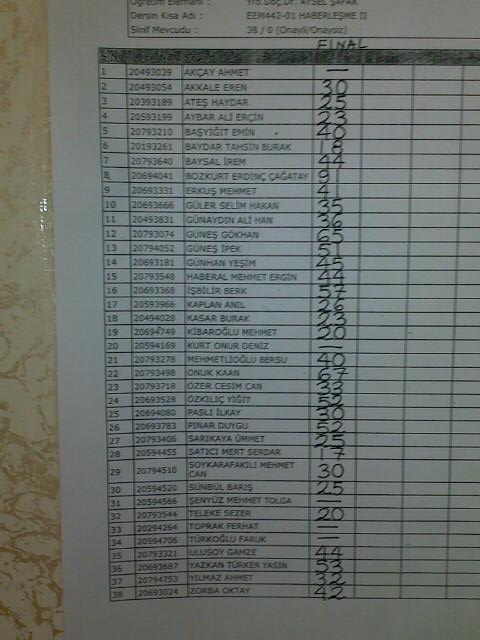 Öğretim Elemanı : Yrd.Doç.Dr. AYSEL ŞAFAK
Dersin Kısa Adı : EEM442-01 HABERLEŞME II
Sınıf Mevcudu : 38 / 0 (Onaylı/Onaysız)
FINAL
1 20493039 AKÇAY AHMET —
2 20493054 AKKALE EREN 30
3 20393189 ATEŞ HAYDAR 25
4 20593199 AYBAR ALİ ERÇİN 23
5 20793210 BAŞYİĞİT EMİN 40
6 20193261 BAYDAR TAHSİN BURAK 18
7 20793640 BAYSAL İREM 44
8 20694041 BOZKURT ERDİNÇ ÇAĞATAY 91
9 20693331 ERKUŞ MEHMET 41
10 20693666 GÜLER SELİM HAKAN 35
11 20493831 GÜNAYDIN ALİ HAN 36
12 20793074 GÜNEŞ GÖKHAN 65
13 20794052 GÜNEŞ İPEK 51
14 20693181 GÜNHAN YEŞİM 45
15 20793548 HABERAL MEHMET ERGİN 44
16 20693368 İŞBİLİR BERK 57
17 20593966 KAPLAN ANIL 26
18 20494028 KASAR BURAK 23
19 20694749 KİBAROĞLU MEHMET 20
20 20594169 KURT ONUR DENİZ —
21 20793278 MEHMETLİOĞLU BERSU 40
22 20793498 ONUK KAAN 67
23 20793718 ÖZER CESİM CAN 33
24 20693528 ÖZKILIÇ YİĞİT 52
25 20694080 PASLI İLKAY 30
26 20693783 PINAR DUYGU 52
27 20793406 SARIKAYA ÜMMET 25
28 20594455 SATICI MERT SERDAR 17
29 20794510 SOYKARAFAKILI MEHMET CAN 30
30 20594520 SÜNBÜL BARIŞ 25
31 20594566 ŞENYÜZ MEHMET TOLGA —
32 20793544 TELEKE SEZER 20
33 20294264 TOPRAK FERHAT —
34 20594706 TÜRKOĞLU FARUK —
35 20793321 ULUSOY GAMZE 44
36 20693687 YAZKAN TÜRKER YASİN 53
37 20794753 YILMAZ AHMET 32
38 20693024 ZORBA OKTAY 42